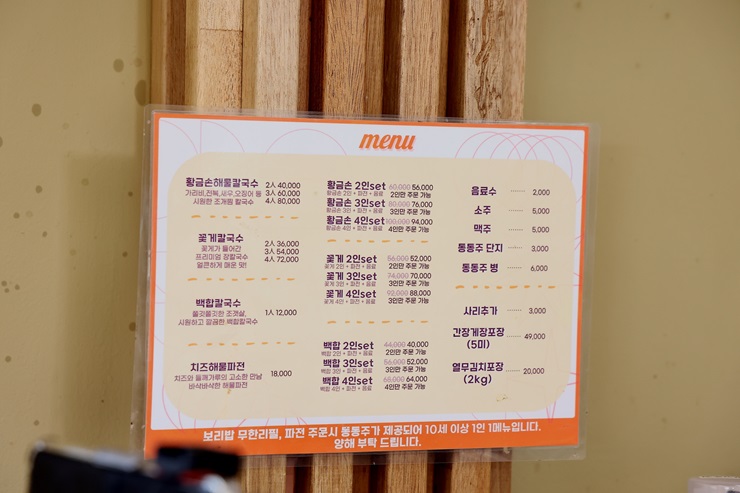 menu
황금손해물칼국수 2人 40,000
가리비,전복,새우,오징어 등 3人 60,000
시원한 조개찜 칼국수 4人 80,000
꽃게칼국수 2人 36,000
꽃게가 들어간 3人 54,000
프리미엄 장칼국수 4人 72,000
얼큰하게 매운 맛!
백합칼국수 1人 12,000
쫄깃쫄깃한 조갯살,
시원하고 깔끔한 백합칼국수
치즈해물파전 18,000
치즈와 들깨가루의 고소한 만남
바삭바삭한 해물파전
황금손 2인set 60,000 56,000
황금손 2인 + 파전 + 음료 2인만 주문 가능
황금손 3인set 80,000 76,000
황금손 3인 + 파전 + 음료 3인만 주문 가능
황금손 4인set 100,000 94,000
황금손 4인 + 파전 + 음료 4인만 주문 가능
꽃게 2인set 56,000 52,000
꽃게 2인 + 파전 + 음료 2인만 주문 가능
꽃게 3인set 74,000 70,000
꽃게 3인 + 파전 + 음료 3인만 주문 가능
꽃게 4인set 92,000 88,000
꽃게 4인 + 파전 + 음료 3인만 주문 가능
백합 2인set 44,000 40,000
백합 2인 + 파전 + 음료 2인만 주문 가능
백합 3인set 56,000 52,000
백합 3인 + 파전 + 음료 3인만 주문 가능
백합 4인set 68,000 64,000
백합 4인 + 파전 + 음료 4인만 주문 가능
음료수 ······· 2,000
소주 ······· 5,000
맥주 ······· 5,000
동동주 단지 ······· 3,000
동동주 병 ······· 6,000
사리추가 ······· 3,000
간장게장포장 ······· 49,000
(5미)
열무김치포장 ······· 20,000
(2kg)
보리밥 무한리필, 파전 주문시 동동주가 제공되어 10세 이상 1인 1메뉴입니다.
양해 부탁 드립니다.